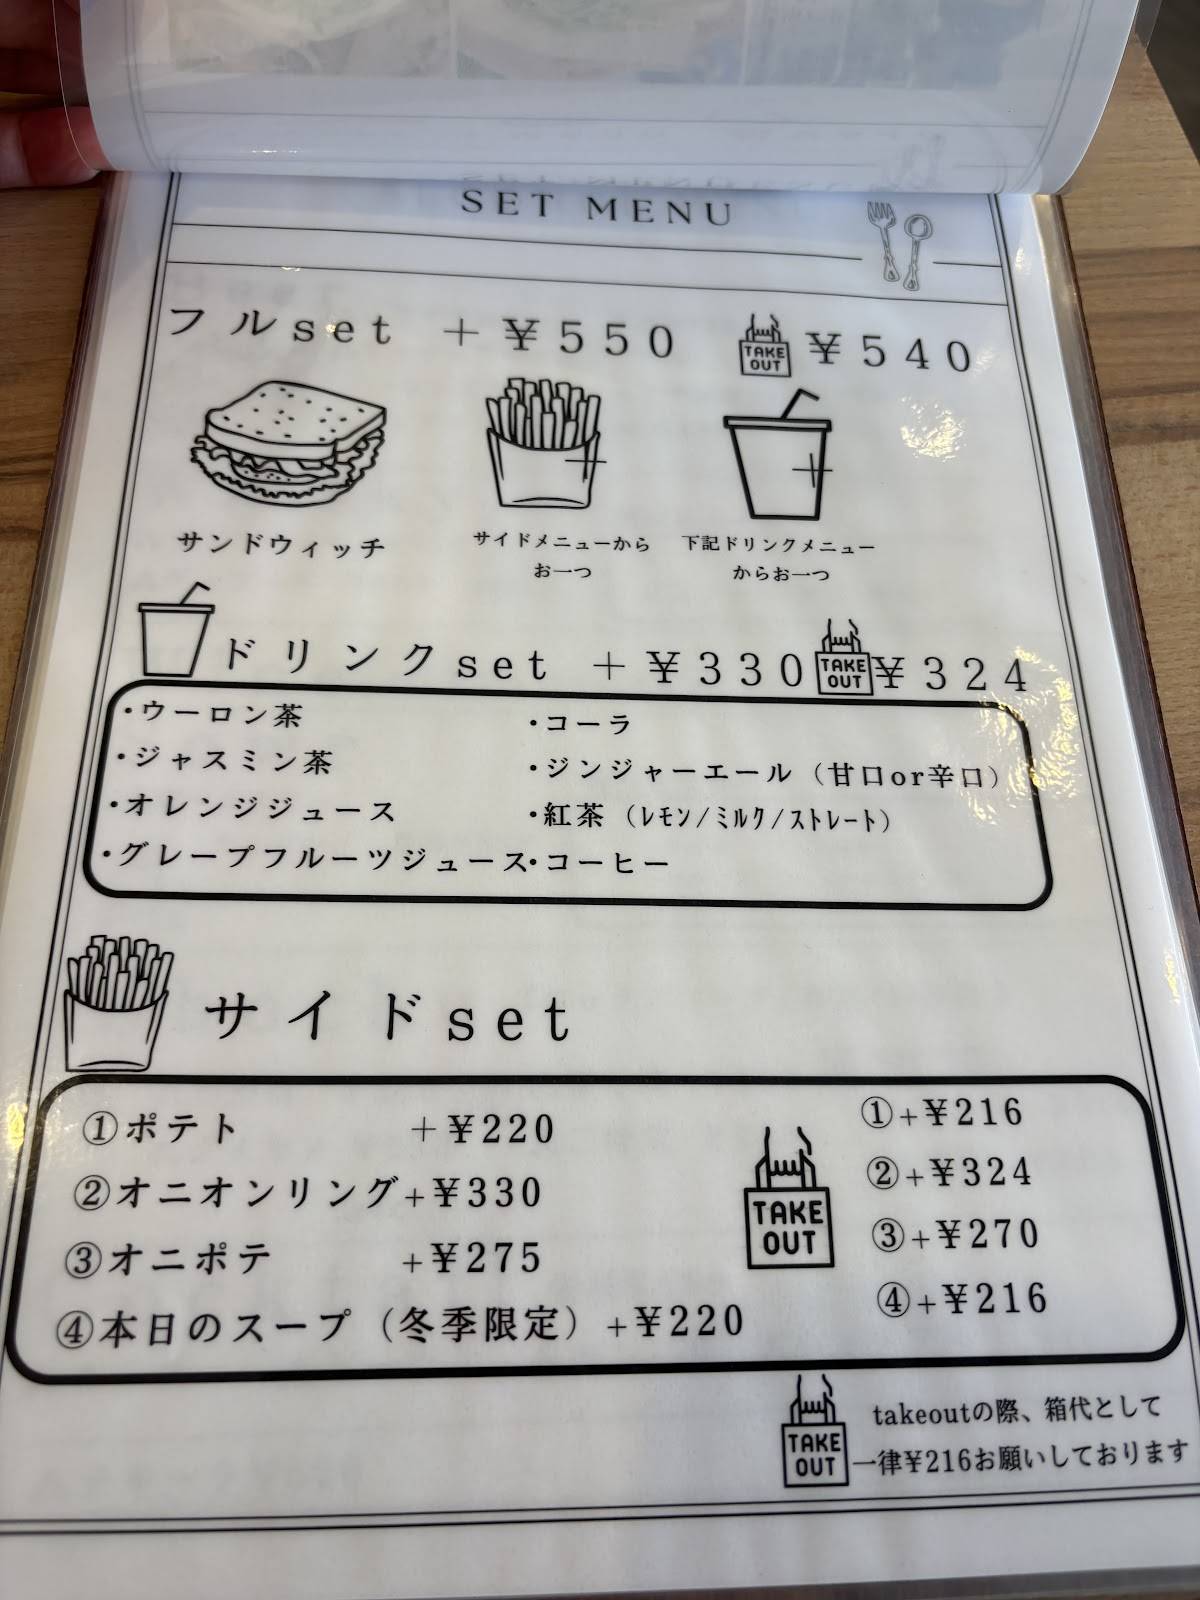 SET MENU
フルset +¥550 TAKE OUT ¥540
サンドウィッチ
サイドメニューから
お一つ
下記ドリンクメニュー
からお一つ
ドリンクset +¥330 TAKE OUT ¥324
・ウーロン茶
・ジャスミン茶
・オレンジジュース
・グレープフルーツジュース
・コーラ
・ジンジャーエール（甘口or辛口）
・紅茶（レモン/ミルク/ストレート）
・コーヒー
サイドset
①ポテト +¥220
②オニオンリング+¥330
③オニポテ +¥275
④本日のスープ（冬季限定）+¥220
TAKE
OUT
①+¥216
②+¥324
③+¥270
④+¥216
TAKE
OUT
takeoutの際、箱代として
一律¥216お願いしております